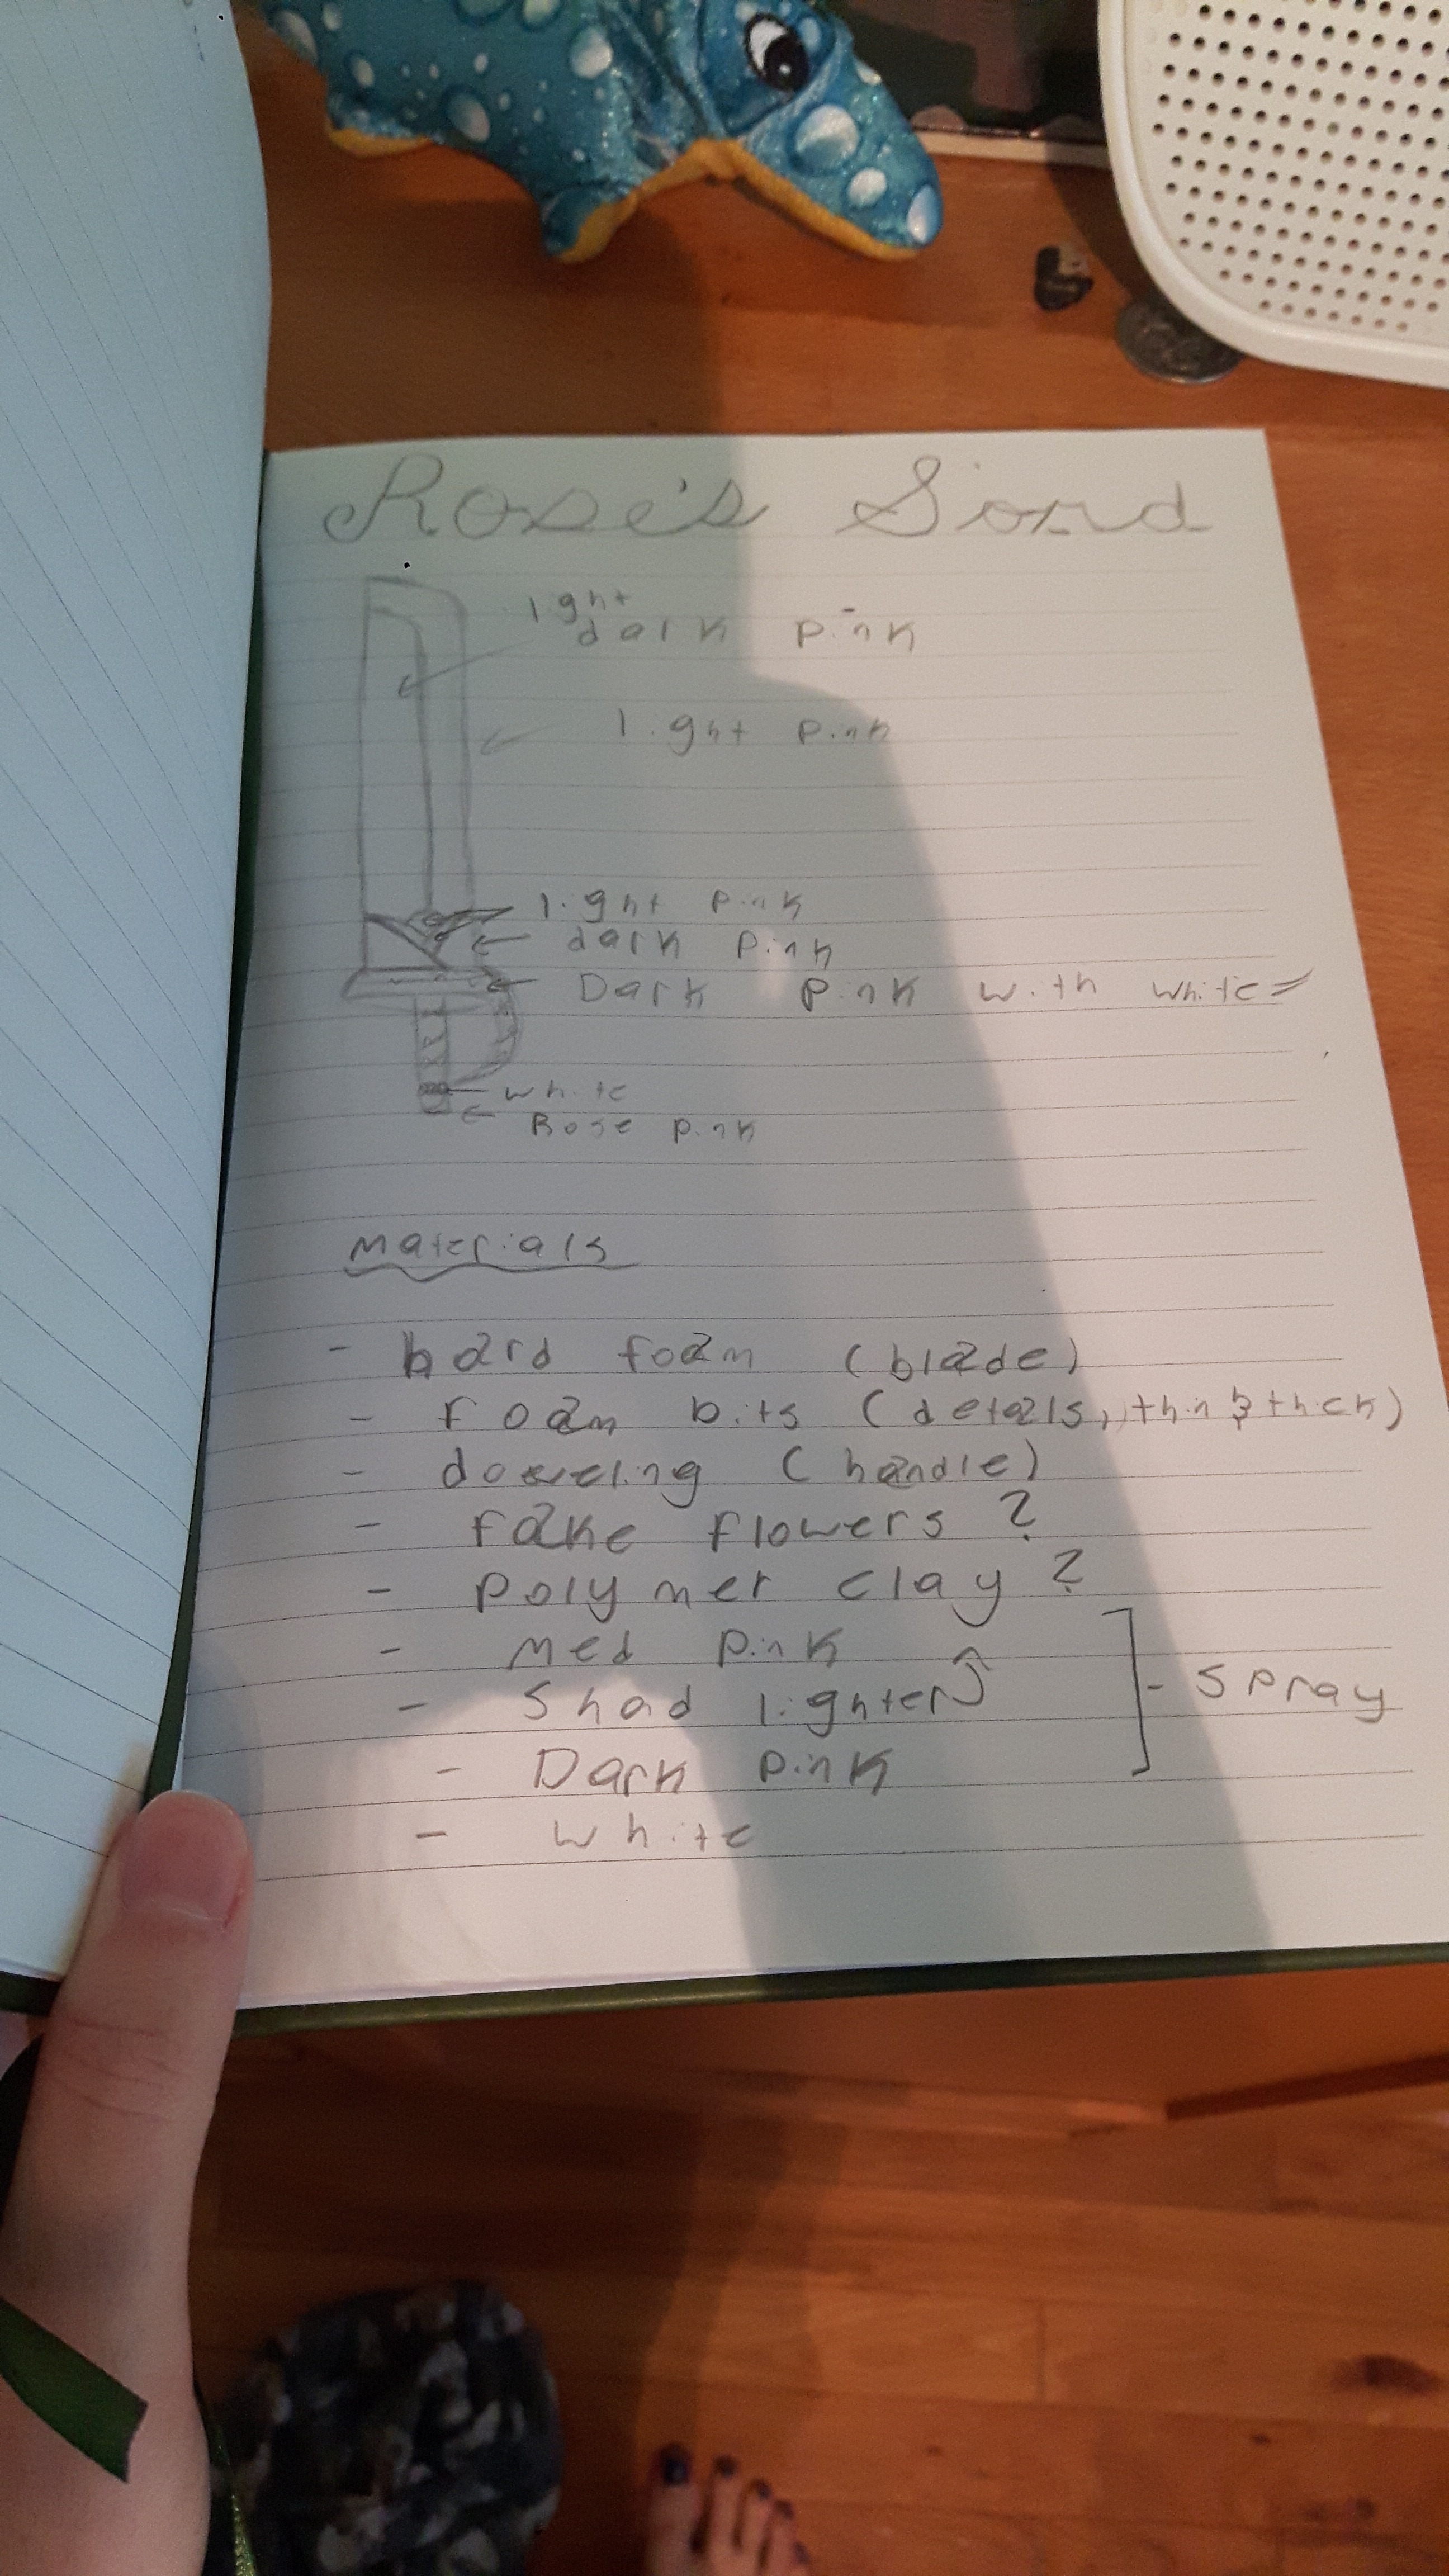 Rose's Sword
light
dark pink
light pink
light pink
dark pink
Dark pink with white
white
Base pink
Materials
- hard foam (blade)
- foam bits (details, thin & thck)
- doweling (handle)
- fake flowers?
- polymer clay?
- Med pink
- Shad lighter
- Dark pink
- white
- spray